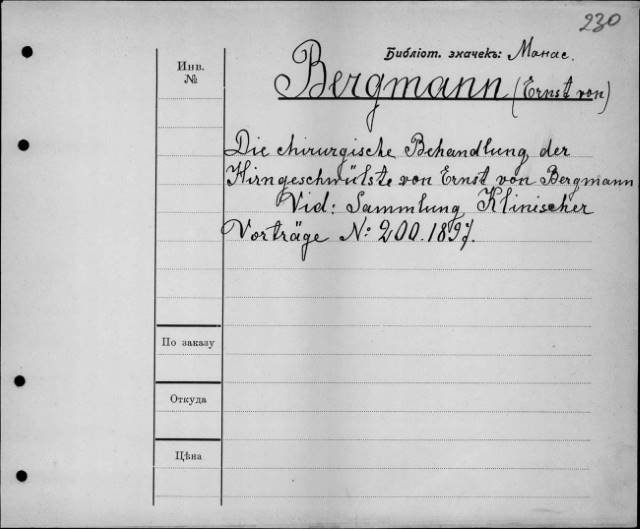 230
Библіот. значекъ: Манас.
Инв.
№
Bergmann (Ernst von)
Die chirurgische Behandlung der
Hirngeschwülste von Ernst von Bergmann
Vid: Sammlung Klinischer
Vorträge No: 200. 1897.
По заказу
Откуда
Цѣна